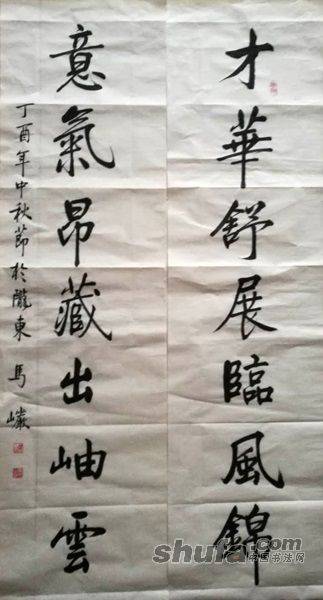 才華舒展臨風錦
意氣昂藏出岫雲
丁酉年中秋節於隴東 馬巖
shufa.com
中国书法网